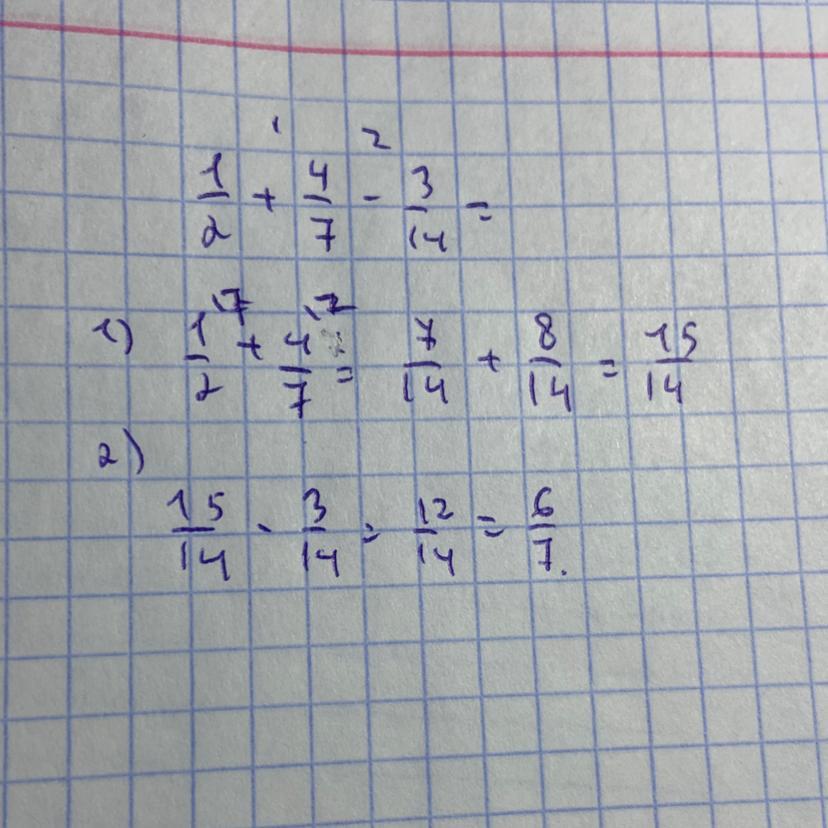 1 2
1/2 + 4/7 - 3/14 =
1) 1/2 \7 + 4/7 \2 = 7/14 + 8/14 = 15/14
2)
15/14 - 3/14 = 12/14 = 6/7.